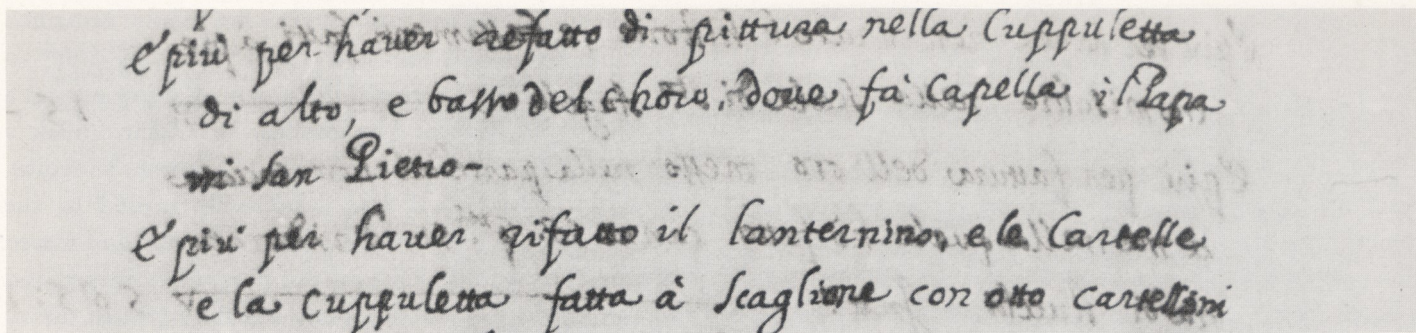 E' più per hauer refatto di pittura nella Cuppuletta
di alto, e basso del choro, doue fà Capella il Papa
in san Pietro-
E' più per hauer rifatto il lanternino, e le Cartelle
e la Cuppuletta fatta à scaglione con otto cartellini